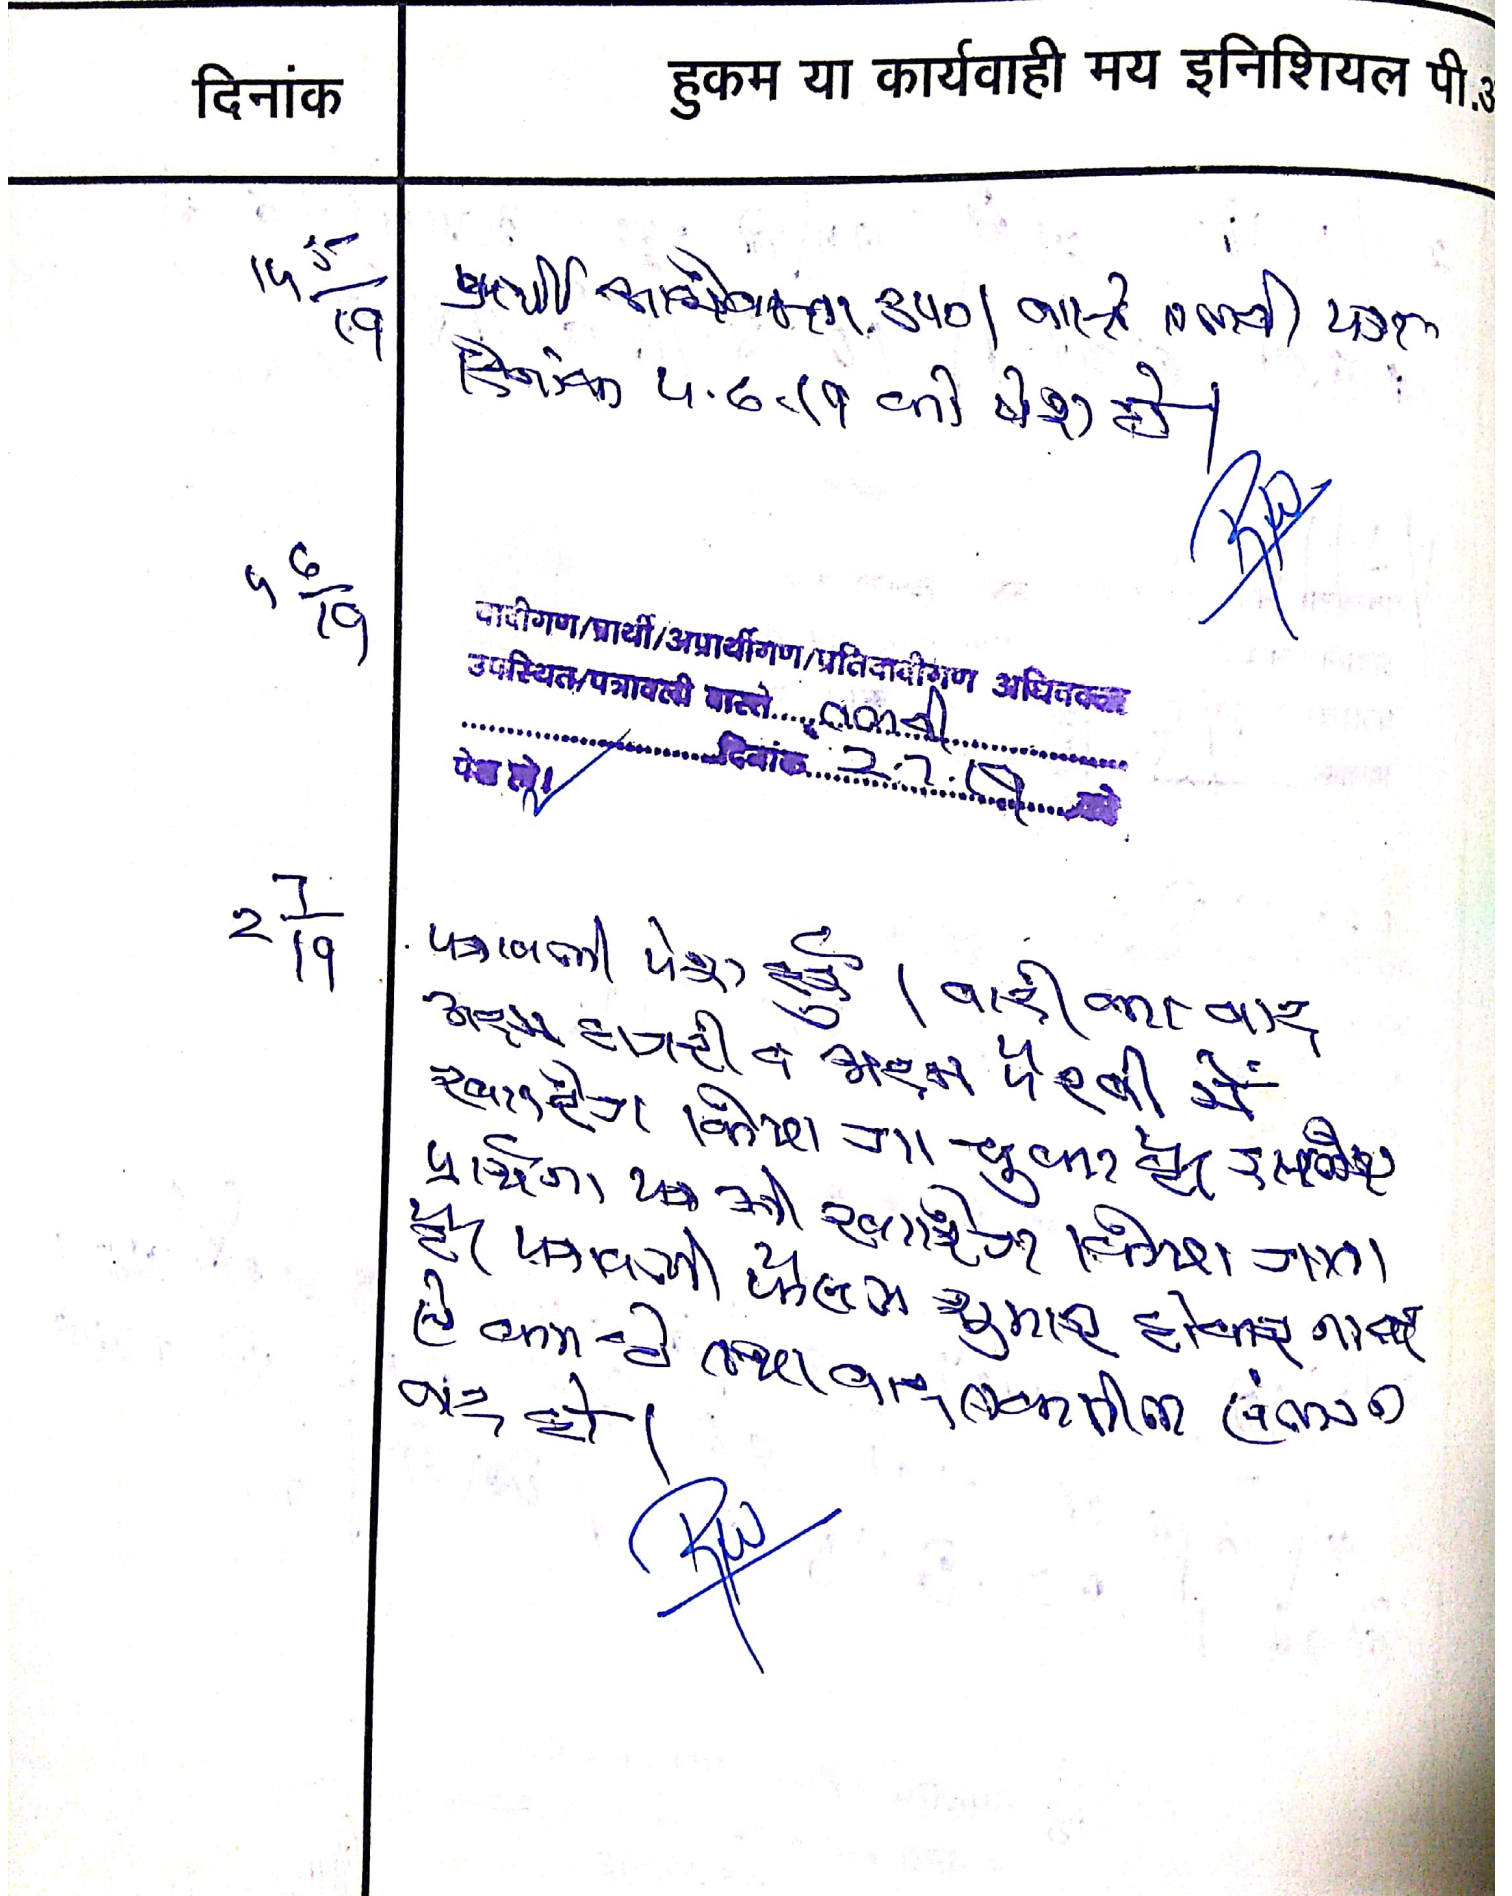 दिनांक
हुकम या कार्यवाही मय इनिशियल पी.अ
14 5/19
प्रार्थी उप0। वास्ते तलबी
दिनांक 4.6.19 को पेश हो।
4 6/19
वादीगण/प्रार्थी/अप्रार्थीगण/प्रतिवादीगण अधिवक्ता
उपस्थित/पत्रावली वास्ते.....तलबी
दिनांक 2.7.19 को
पेश हो।
2 7/19
पत्रावली पेश हुई। वादी का वाद
अदम हाजरी व अदम पैरवी में
खारिज किया जा चुका है इसलिए
प्रार्थना पत्र भी खारिज किया जाता
है पत्रावली फैसल शुमार होकर नम्बर
से कम हो तथा बाद तकमील संलग्न
वाद हो।